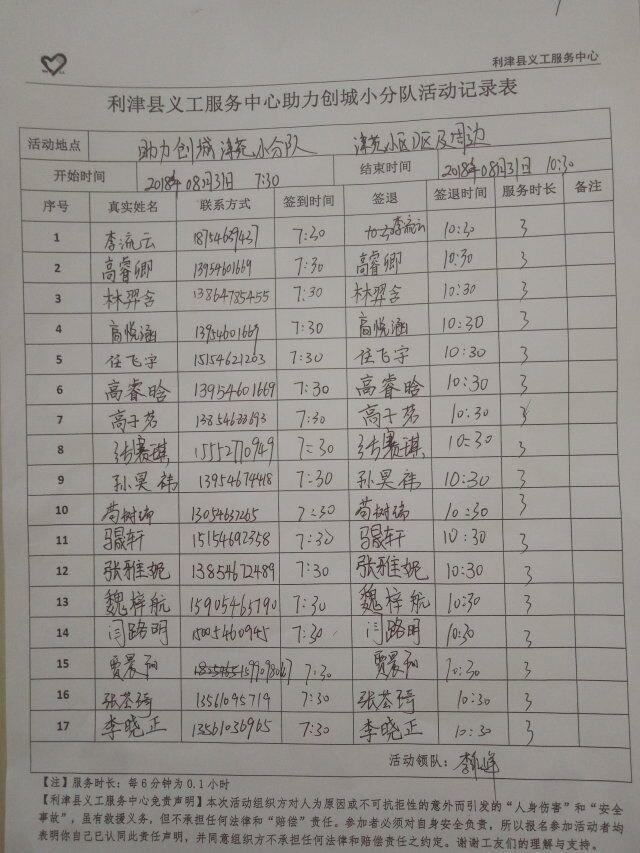 利津县义工服务中心
利津县义工服务中心助力创城小分队活动记录表
活动地点 助力创城津苑小分队 津苑小区D区及周边
开始时间 2018年08月31日 7:30 结束时间 2018年08月31日 10:30
序号 真实姓名 联系方式 签到时间 签退 签退时间 服务时长 备注
1 李流云 18754659437 7:30 李流云 10:30 3
2 高睿卿 13954601669 7:30 高睿卿 10:30 3
3 林羿含 13864785455 7:30 林羿含 10:30 3
4 高悦涵 13954601669 7:30 高悦涵 10:30 3
5 任飞宇 15154621203 7:30 任飞宇 10:30 3
6 高睿晗 13954601669 7:30 高睿晗 10:30 3
7 高子茗 7:30 高子茗 10:30 3
8 张赛琪 15552770949 7:30 张赛琪 10:30 3
9 孙昊祎 13954674418 7:30 孙昊祎 10:30 3
10 苟树瑞 13054637265 7:30 苟树瑞 10:30 3
11 马晟轩 15154692358 7:30 马晟轩 10:30 3
12 张雅妮 13854672489 7:30 张雅妮 10:30 3
13 魏梓航 15905465790 7:30 魏梓航 10:30 3
14 闫路明 15005460945 7:30 闫路明 10:30 3
15 7:30 10:30 3
16 张荃琦 13561095719 7:30 张荃琦 10:30 3
17 李晓正 13561036965 7:30 李晓正 10:30 3
活动领队:
【注】服务时长：每6分钟为0.1小时
【利津县义工服务中心免责声明】本次活动组织方对人为原因或不可抗拒性的意外而引发的“人身伤害”和“安全
事故”，虽有救援义务，但不承担任何法律和“赔偿”责任。参加者必须对自身安全负责，所以报名参加活动者均
表明你自己已认同此责任声明，并同意组织方不承担任何法律和赔偿责任之约定。谢谢义工友们的理解与支持。